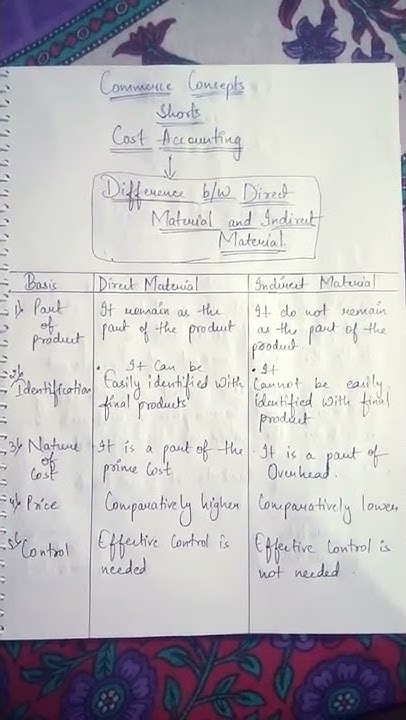 Commerce Concepts
Shorts
Cost Accounting
Difference b/w Direct
Material and Indirect
Material.
Basis Direct Material Indirect Material
1) Part
of
product
It remain as the
part of the product
It do not remain
as the part of the
product.
2)
Identification
• It Can be
Easily identified with
final products
• It
Cannot be easily
identified with final
product
3) Nature
of
Cost
It is a part of the
prime Cost
It is a part of
Overhead.
4) Price
Comparatively higher
Comparatively lower
5) Control
Effective Control is
needed
Effective Control is
not needed.